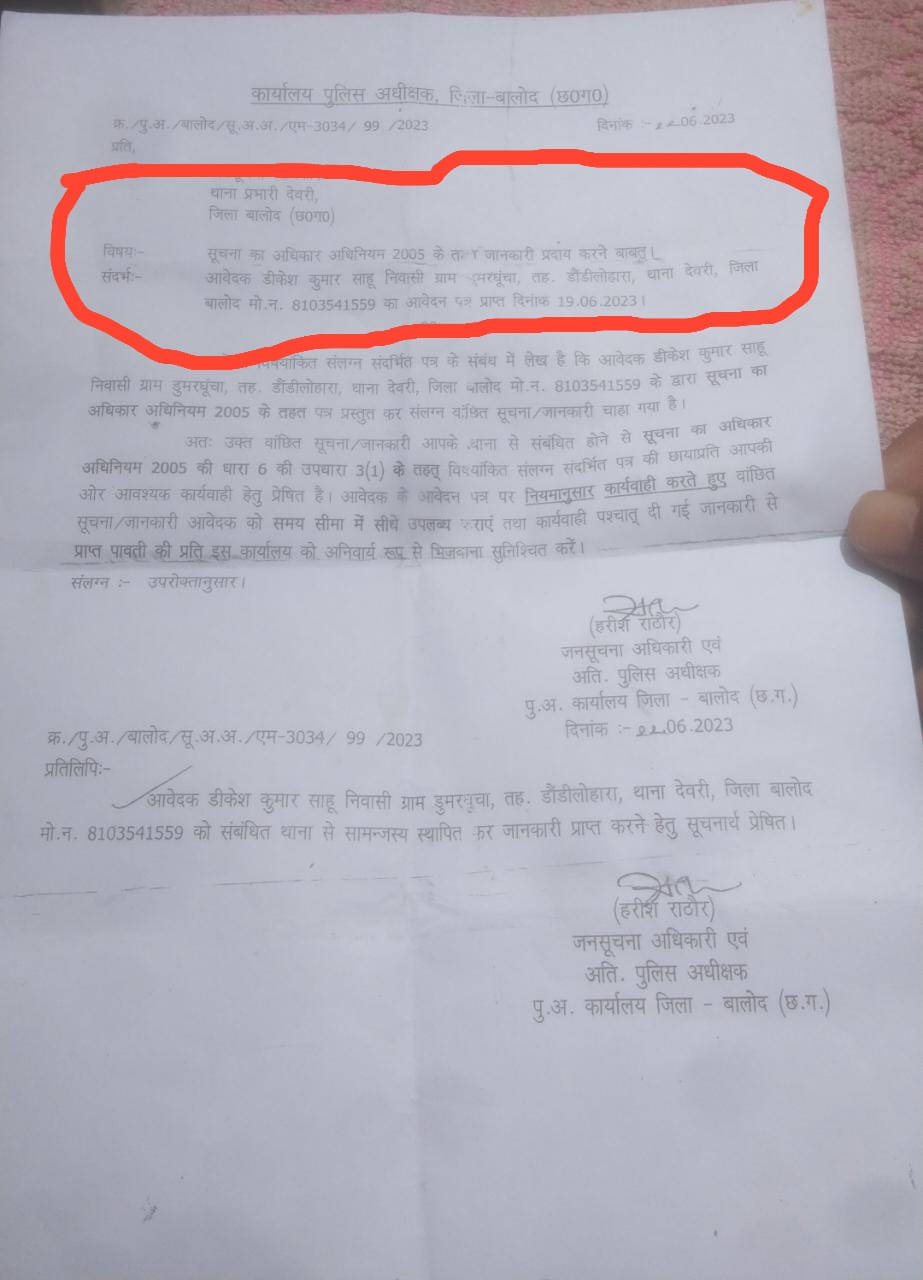 कार्यालय पुलिस अधीक्षक, जिला-बालोद (छ0ग0)
क्र./पु.अ./बालोद/सू.अ.अ./एम-3034/ 99 /2023 दिनांक :-22.06.2023
प्रति,
थाना प्रभारी देवरी,
जिला बालोद (छ0ग0)
विषयः- सूचना का अधिकार अधिनियम 2005 के जानकारी प्रदाय करने बाबत्।
संदर्भः- आवेदक डीकेश कुमार साहू निवासी ग्राम डुमरघूंचा, तह. डौंडीलोहारा, थाना देवरी, जिला
बालोद मो.न. 8103541559 का आवेदन पत्र प्राप्त दिनांक 19.06.2023।
विषयांकित संलग्न संदर्भित पत्र के संबंध में लेख है कि आवेदक डीकेश कुमार साहू
निवासी ग्राम डुमरघूंचा, तह. डौंडीलोहारा, थाना देवरी, जिला बालोद मो.न. 8103541559 के द्वारा सूचना का
अधिकार अधिनियम 2005 के तहत पत्र प्रस्तुत कर संलग्न वांछित सूचना/जानकारी चाहा गया है।
अतः उक्त वांछित सूचना/जानकारी आपके थाना से संबंधित होने से सूचना का अधिकार
अधिनियम 2005 की धारा 6 की उपधारा 3(1) के तहत् विषयांकित संलग्न संदर्भित पत्र की छायाप्रति आपकी
ओर आवश्यक कार्यवाही हेतु प्रेषित है। आवेदक के आवेदन पत्र पर नियमानुसार कार्यवाही करते हुए वांछित
सूचना/जानकारी आवेदक को समय सीमा में सीधे उपलब्ध कराएं तथा कार्यवाही पश्चात् दी गई जानकारी से
प्राप्त पावती की प्रति इस कार्यालय को अनिवार्य रूप से भिजवाना सुनिश्चित करें।
संलग्न :- उपरोक्तानुसार।
(हरीश राठौर)
जनसूचना अधिकारी एवं
अति. पुलिस अधीक्षक
पु.अ. कार्यालय जिला - बालोद (छ.ग.)
क्र./पु.अ./बालोद/सू.अ.अ./एम-3034/ 99 /2023 दिनांक :-22.06.2023
प्रतिलिपिः-
आवेदक डीकेश कुमार साहू निवासी ग्राम डुमरघूंचा, तह. डौंडीलोहारा, थाना देवरी, जिला बालोद
मो.न. 8103541559 को संबंधित थाना से सामन्जस्य स्थापित कर जानकारी प्राप्त करने हेतु सूचनार्थ प्रेषित।
(हरीश राठौर)
जनसूचना अधिकारी एवं
अति. पुलिस अधीक्षक
पु.अ. कार्यालय जिला - बालोद (छ.ग.)